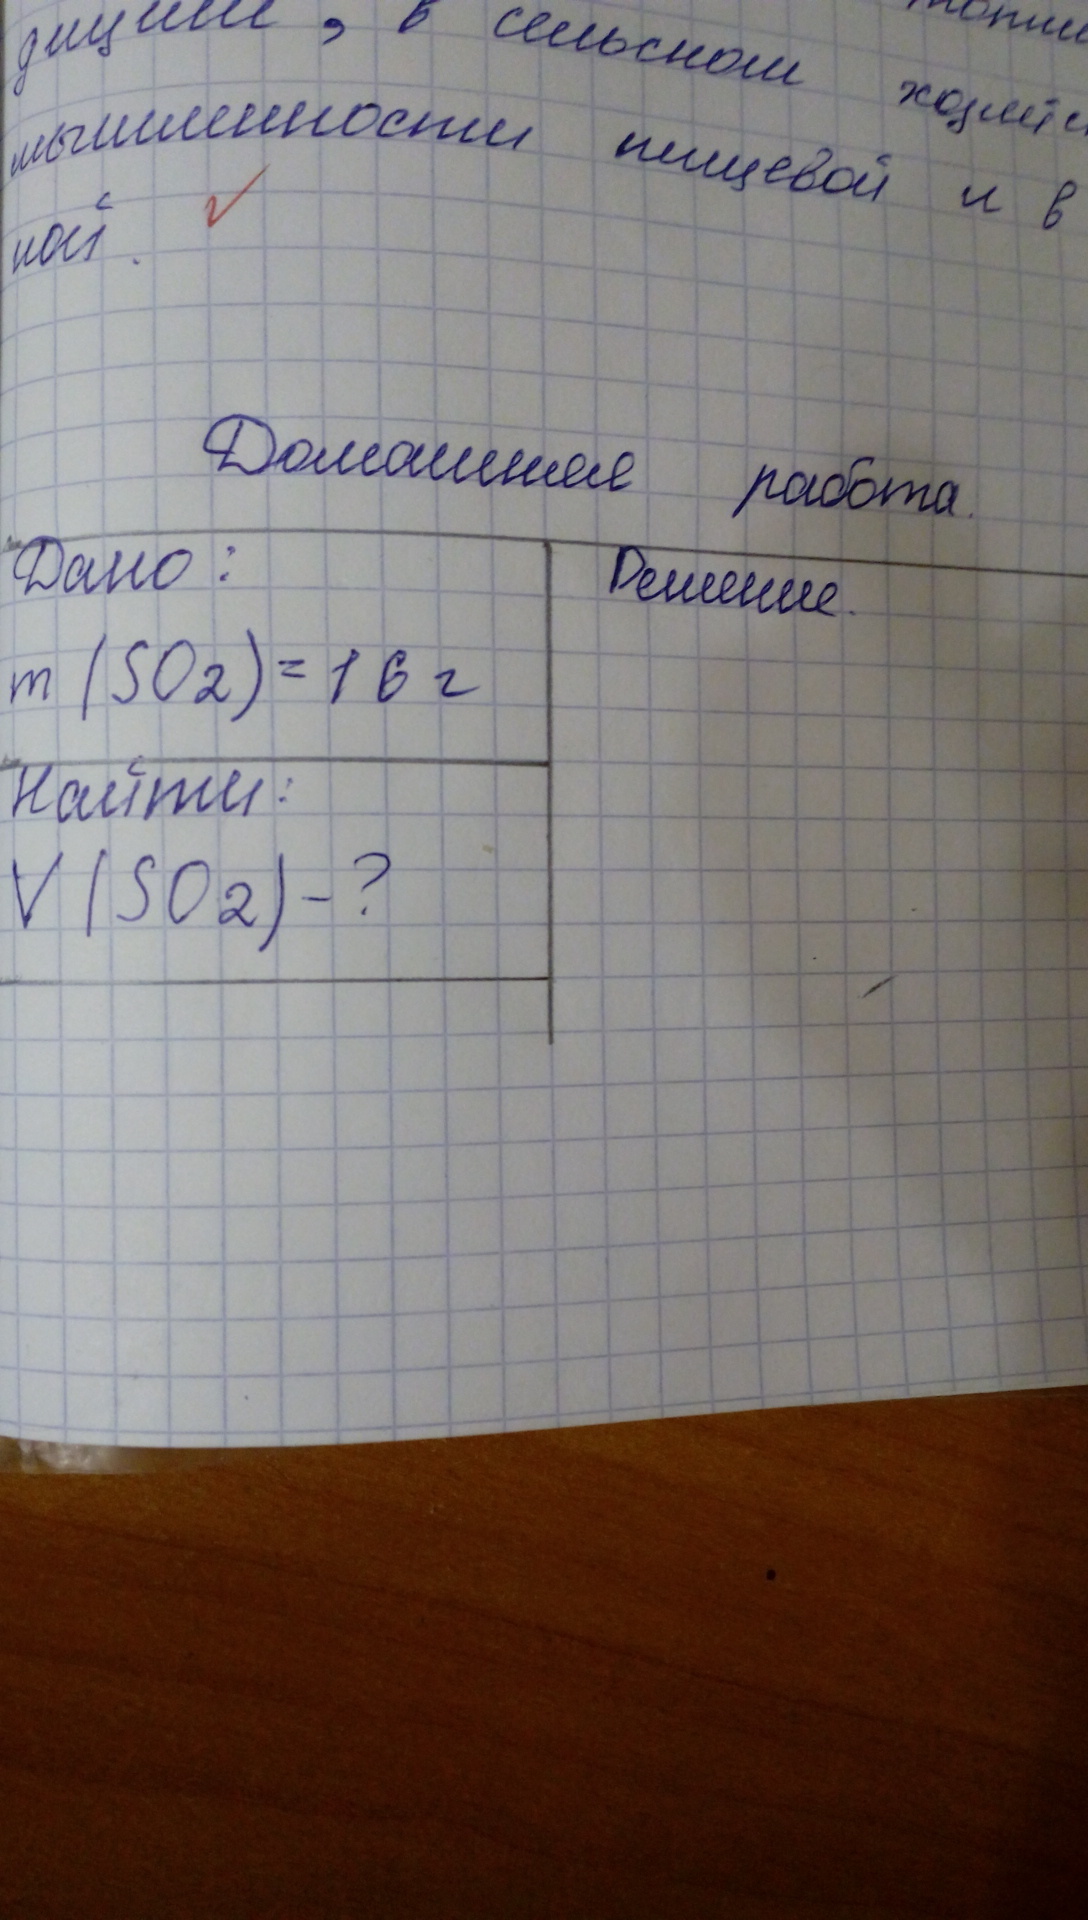 дицине, в сельском хозяйс
мышленности пищевой и в
ной.
Домашняя работа.
Дано:
m (SO2) = 16 г
Найти:
V (SO2) - ?
Решение.